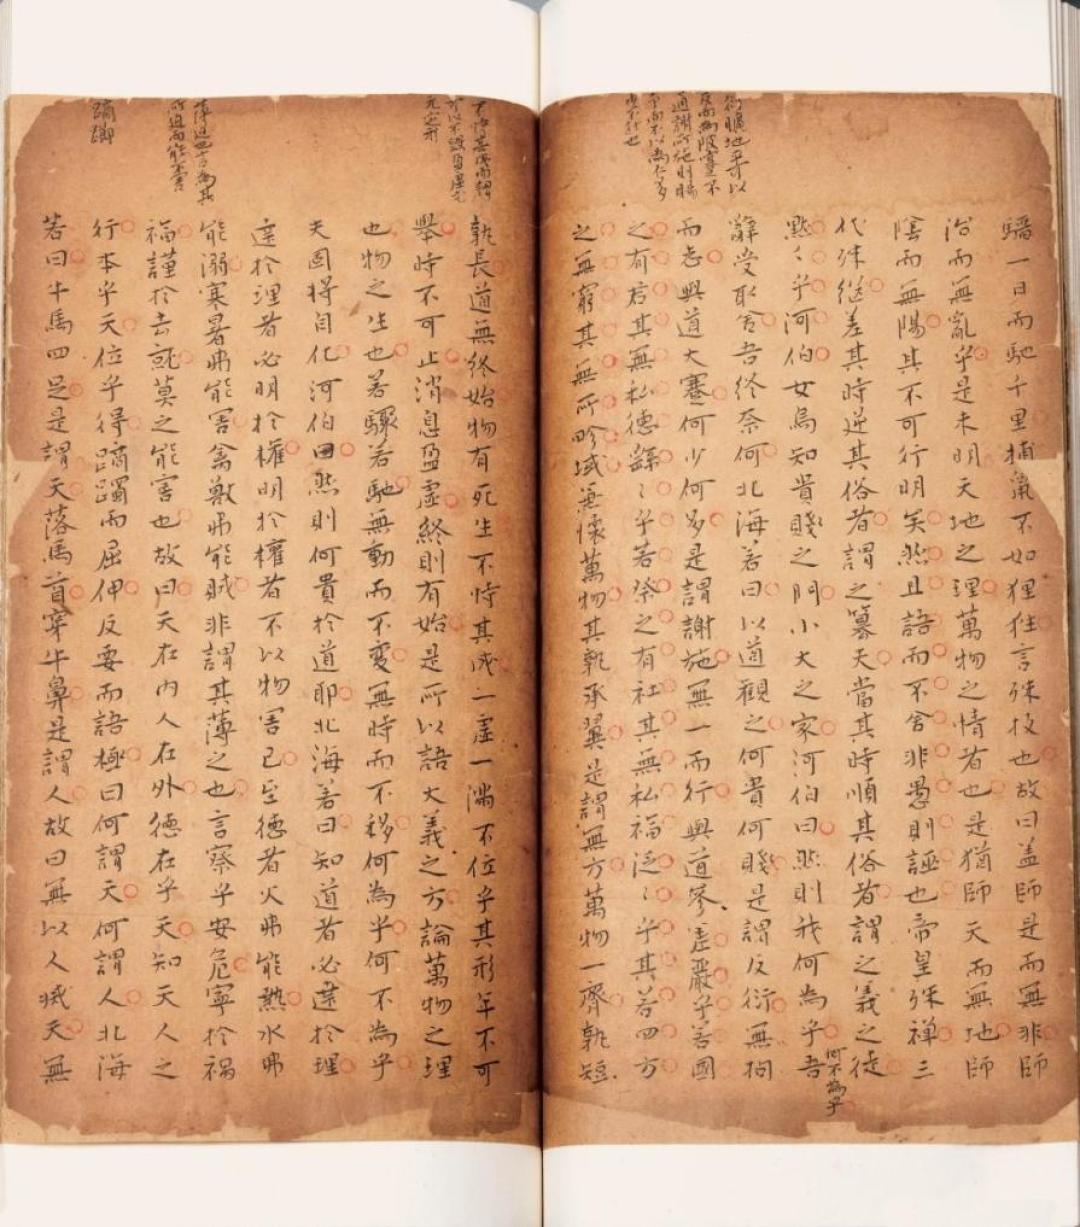 驥一日而馳千里捕䑕不如狸狌言殊技也故曰盖師是而無非師
治而無亂乎是未明天地之理萬物之情者也是猶師天而無地師
陰而無陽其不可行明矣然且語而不舍非愚則誣也帝皇殊禅三
代殊继差其時逆其俗者謂之篡夫當其時順其俗者謂之義之徒
黙〻乎河伯女烏知貴賤之門小大之家河伯曰然則我何為乎吾
何不為乎
辭受取舍吾終奈何北海若曰以道觀之何貴何賤是謂反衍無拘
而志興道大蹇何少何多是謂謝施無一而行興道参嚴乎若國
之有君其無私德繇〻乎若祭之有社其無私福泛〻乎其若四方
之無窮其無所畛域無懷萬物其孰承翼是謂無方萬物一齊孰短
孰長道無終始物有死生不恃其成一虚一满不位乎其形年不可
舉時不可止消息盈虚終則有始是所以語大義之方論萬物之理
也物之生也若驟若馳無動而不變無時而不移何為乎何不為乎
夫固将自化河伯曰然則何貴於道耶北海若曰知道者必達於理
達於理者必明於權明於權者不以物害已至德者火弗能熱水弗
能溺寒暑弗能害禽獣弗能賊非謂其薄之也言察乎安危寧於禍
福謹於去就莫之能害也故曰天在内人在外德在乎天知天人之
行本乎天位乎得蹢躅而屈伸反要而語極曰何謂天何謂人北海
若曰牛馬四足是謂天落馬首穿牛鼻是謂人故曰無以人滅天無
蹢躑